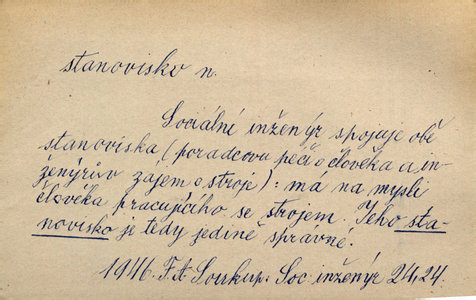 stanovisko n.
Sociální inženýr spojuje obě
stanoviska (poradcovu péči o člověka a in-
ženýrův zájem o stroje): má na mysli
člověka pracujícího se strojem. Jeho sta-
novisko je tedy jedině správné.
1946. F. A. Soukup: Soc. inženýr 24,24.